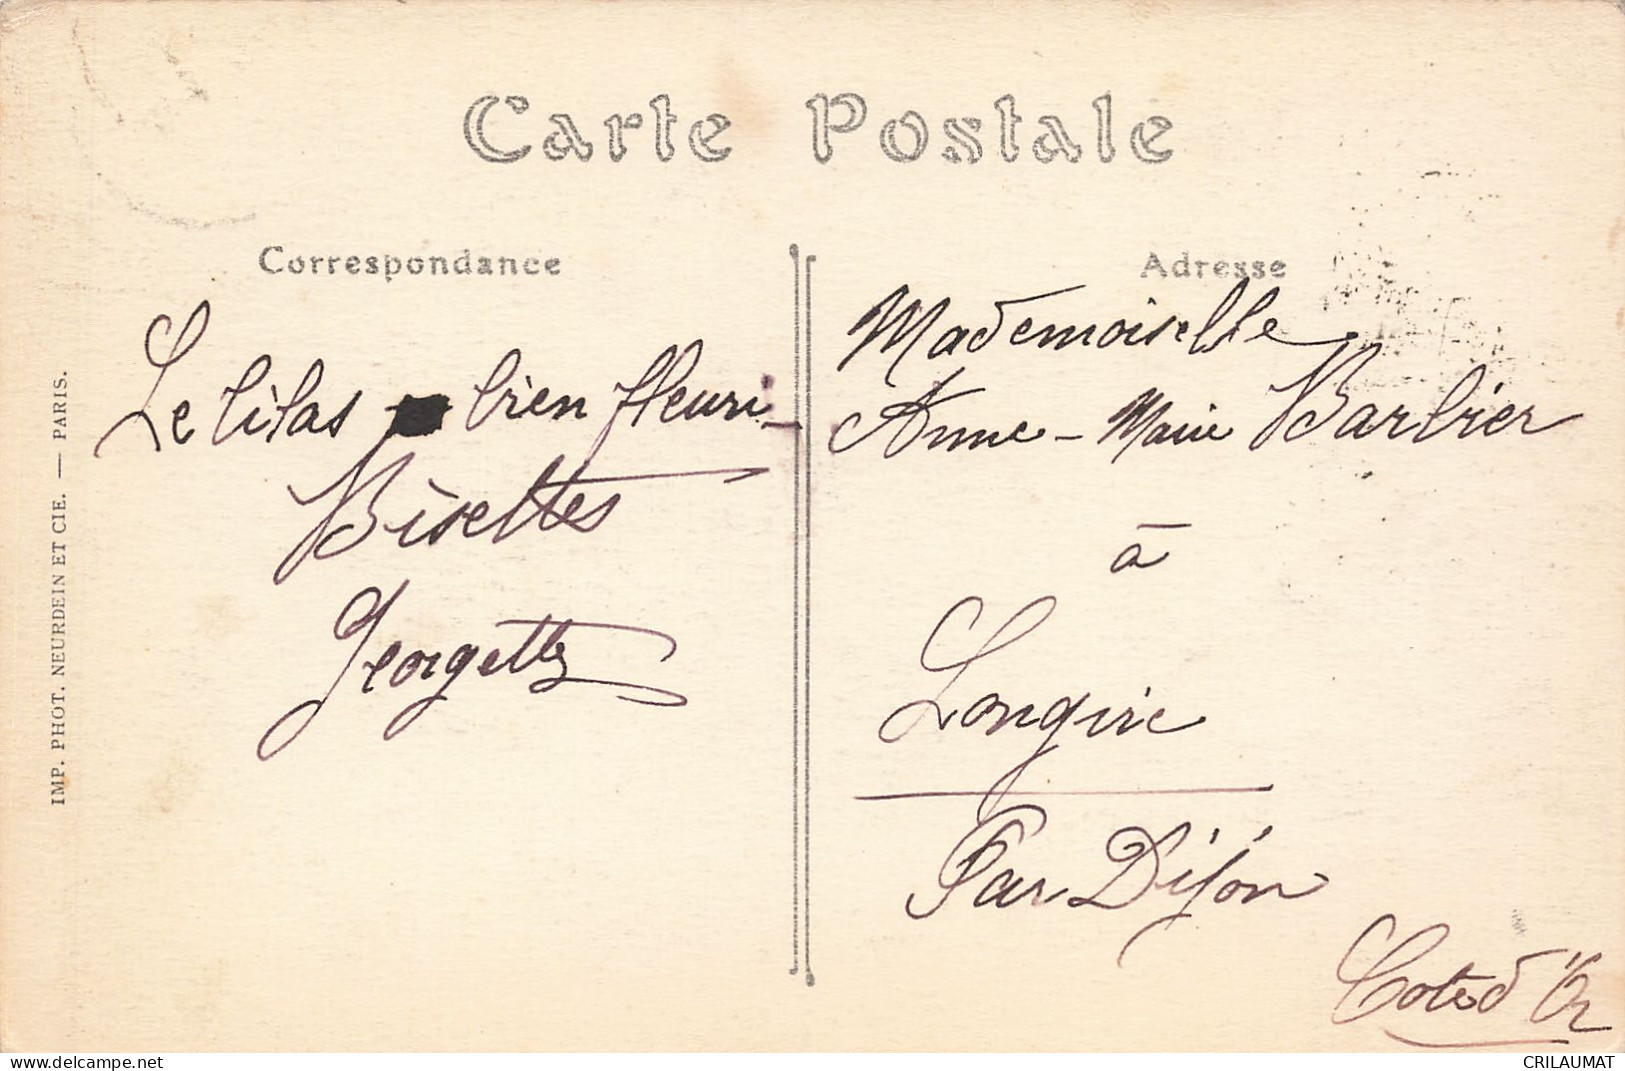 Carte Postale
Correspondance
Le lilas bien fleuri_
Bisettes
Georgette
Adresse
Mademoiselle
Anne-Marie Barbier
à
Longvic
Par Dijon
Cote d'Or
IMP. PHOT. NEURDEIN ET CIE. — PARIS.
https://www.delcampe.net
CRILAUMAT